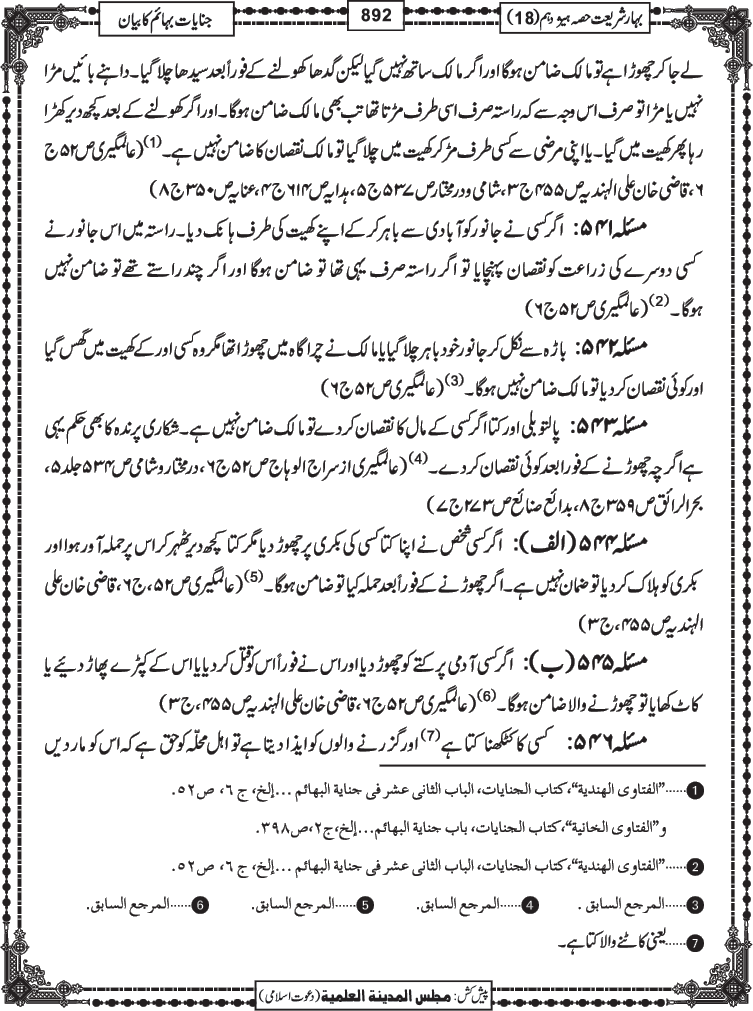 بہارِ شریعت حصہ ہیزدہم (18)
892
جنایات بہائم کا بیان
لے جا کر چھوڑا ہے تو مالک ضامن ہوگا اور اگر مالک ساتھ نہیں گیا لیکن گدھا کھولنے کے فوراً بعد سیدھا چلا گیا۔ داہنے بائیں مڑا
نہیں یا مڑا تو صرف اس وجہ سے کہ راستہ صرف اسی طرف مڑتا تھا تب بھی مالک ضامن ہوگا۔ اور اگر کھولنے کے بعد کچھ دیر کھڑا
رہا پھر کھیت میں گیا۔ یا اپنی مرضی سے کسی طرف مڑ کر کھیت میں چلا گیا تو مالک نقصان کا ضامن نہیں ہے۔(1) (عالمگیری ص ۵۲ ج
۶، قاضی خان علی الہندیہ ص ۴۵۵ ج ۳، شامی و درمختار ص ۵۳۷ ج ۵، ہدایہ ص ۶۱۴ ج ۴، عنایہ ص ۳۵۰ ج ۸)
مسئلہ ۵۴۱: اگر کسی نے جانور کو آبادی سے باہر کر کے اپنے کھیت کی طرف ہانک دیا۔ راستہ میں اس جانور نے
کسی دوسرے کی زراعت کو نقصان پہنچایا تو اگر راستہ صرف یہی تھا تو ضامن ہوگا اور اگر چند راستے تھے تو ضامن نہیں
ہوگا۔(2) (عالمگیری ص ۵۲ ج ۶)
مسئلہ ۵۴۲: باڑہ سے نکل کر جانور خود باہر چلا گیا یا مالک نے چراگاہ میں چھوڑا تھا مگر وہ کسی اور کے کھیت میں گھس گیا
اور کوئی نقصان کر دیا تو مالک ضامن نہیں ہوگا۔(3) (عالمگیری ص ۵۲ ج ۶)
مسئلہ ۵۴۳: پالتو بلی اور کتا اگر کسی کے مال کا نقصان کر دے تو مالک ضامن نہیں ہے۔ شکاری پرندہ کا بھی حکم یہی
ہے اگرچہ چھوڑنے کے فوراً بعد کوئی نقصان کر دے۔(4) (عالمگیری از سراج الوہاج ص ۵۲ ج ۶، درمختار و شامی ص ۵۳۴ جلد ۵،
بحر الرائق ص ۳۵۹ ج ۸، بدائع صنائع ص ۲۷۳ ج ۷)
مسئلہ ۵۴۴ (الف): اگر کسی شخص نے اپنا کتا کسی کی بکری پر چھوڑ دیا مگر کتا کچھ دیر ٹھہر کر اس پر حملہ آور ہوا اور
بکری کو ہلاک کر دیا تو ضمان نہیں ہے۔ اگر چھوڑنے کے فوراً بعد حملہ کیا تو ضامن ہوگا۔(5) (عالمگیری ص ۵۲، ج ۶، قاضی خان علی
الہندیہ ص ۴۵۵، ج ۳)
مسئلہ ۵۴۵ (ب): اگر کسی آدمی پر کتے کو چھوڑ دیا اور اس نے فوراً اس کو قتل کر دیا یا اس کے کپڑے پھاڑ دئیے یا
کاٹ کھایا تو چھوڑنے والا ضامن ہوگا۔(6) (عالمگیری ص ۵۲ ج ۶، قاضی خان علی الہندیہ ص ۴۵۵، ج ۳)
مسئلہ ۵۴۶: کسی کا کٹکھنا کتا ہے(7) اور گزرنے والوں کو ایذا دیتا ہے تو اہل محلّہ کو حق ہے کہ اس کو مار دیں
1......"الفتاوى الهندية"، كتاب الجنايات، الباب الثانى عشر فى جناية البهائم...إلخ، ج ٦، ص ٥٢.
و"الفتاوى الخانية"، كتاب الجنايات، باب جناية البهائم...إلخ، ج٢، ص٣٩٨.
2......"الفتاوى الهندية"، كتاب الجنايات، الباب الثانى عشر فى جناية البهائم...إلخ، ج ٦، ص ٥٢.
3......المرجع السابق. 4......المرجع السابق. 5......المرجع السابق. 6......المرجع السابق.
7......یعنی کاٹنے والا کتا ہے۔
پیش کش: مجلس المدينة العلمية (دعوت اسلامی)